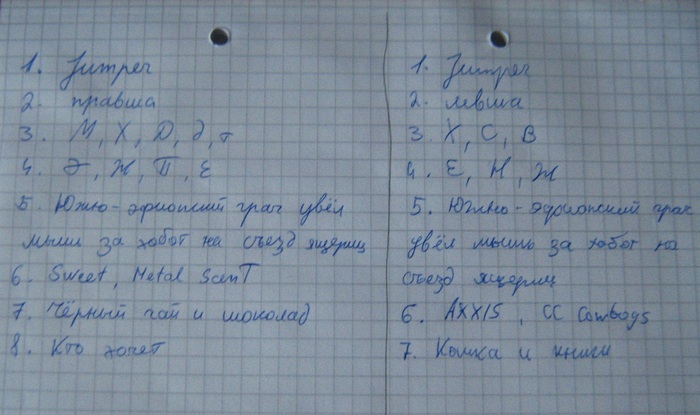 1. Jumper
2. правша
3. М, Х, Д, д, т
4. Э, Ж, П, Е
5. Южно-эфиопский грач увёл
мышь за хобот на съезд ящериц
6. Sweet, Metal Scent
7. Чёрный чай и шоколад
8. Кто хочет
1. Jumper
2. левша
3. Х, С, В
4. Е, Н, Ж
5. Южно-эфиопский грач
увёл мышь за хобот на
съезд ящериц
6. AXXIS, CC Cowboys
7. Кошка и книги